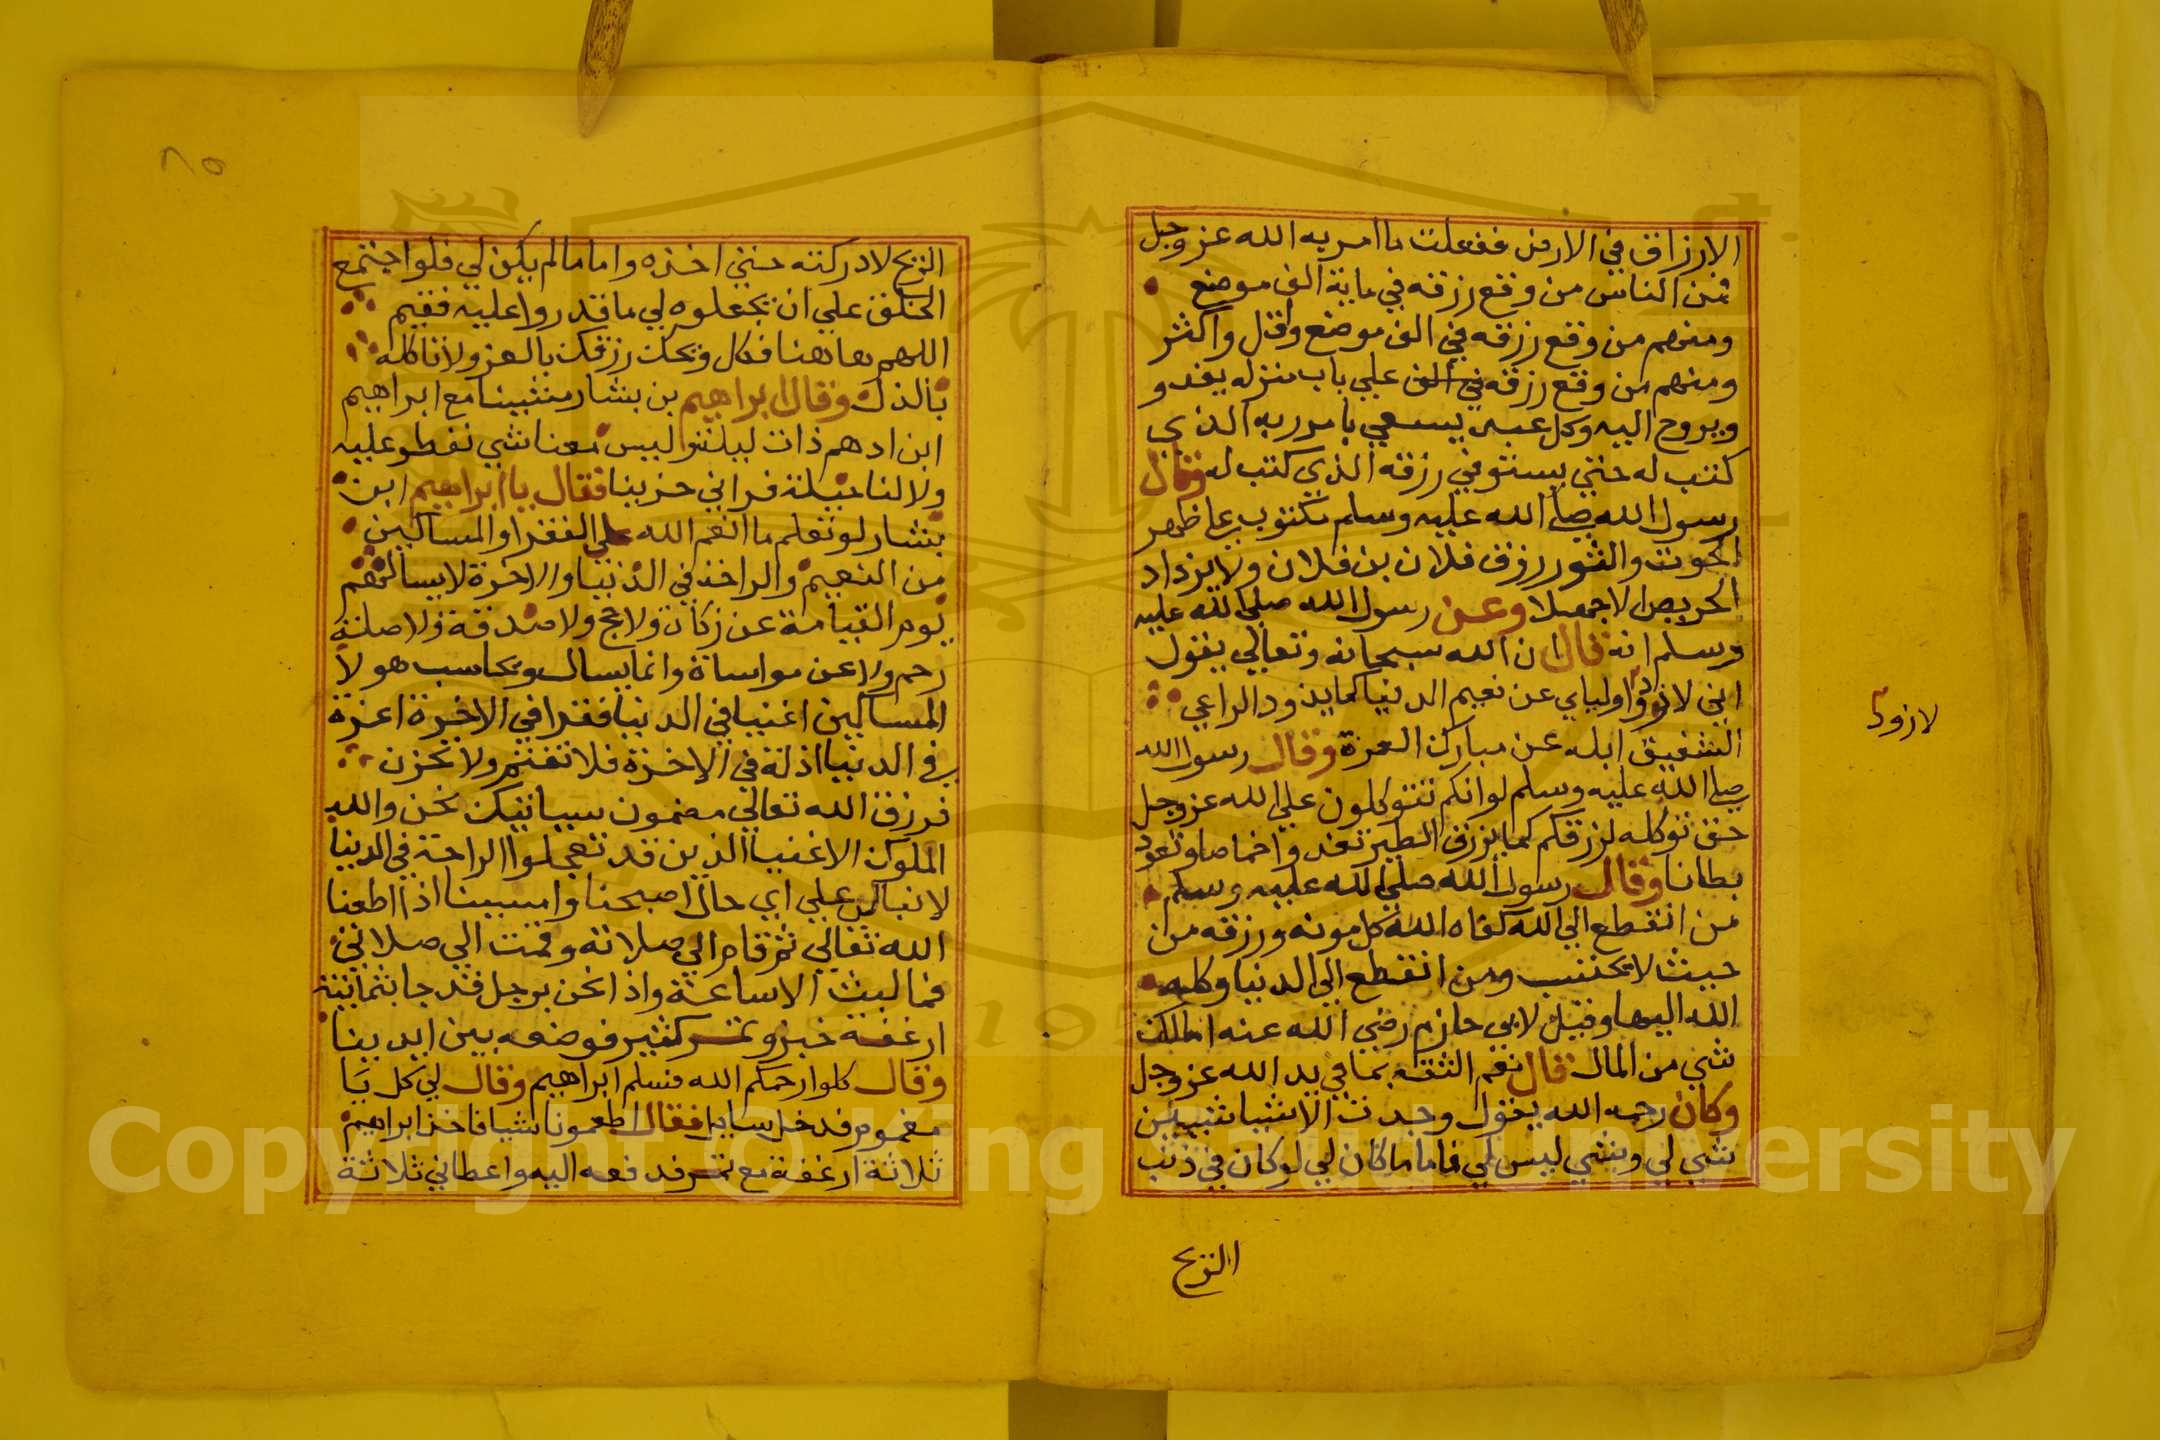 الارزاق في الارض ففعلت ما امر به الله عز وجل
فمن الناس من وقع رزقه في ماية الف موضع
ومنهم من وقع رزقه في الف موضع واقل واكثر
ومنهم من وقع رزقه علي باب منزله يغدو
ويروح اليه وكل عبد يسعي بامر ربه الذي
كتب له حتي يستوفي رزقه الذي كتب له وقال
رسول الله صلي الله عليه وسلم مكتوب علي ظهر
الحوت والثور رزق فلان بن فلان ولا يزداد
الحريص الا جهدا وعن رسول الله صلي الله عليه
وسلم انه قال ان الله سبحانه وتعالي يقول
اني لاذود اولياي عن نعيم الدنيا كما يذود الراعي
الشفيق ابله عن مبارك العرة وقال رسول الله
صلي الله عليه وسلم لو انكم تتوكلون علي الله عز وجل
حق توكله لرزقكم كما يرزق الطير تغدوا خماصا وتعود
بطانا وقال رسول الله صلي الله عليه وسلم
من انقطع الي الله كفاه الله كل مونه ورزقه من
حيث لا يحتسب ومن انقطع الي الدنيا وكله
الله اليها وقيل لابي حازم رضي الله عنه امالك
شي من المال قال نعم الثقة بما في يد الله عز وجل
وكان رحمه الله يقول وجدت الاشيا شيين
شي لي وشي ليس لي فاما ما كان لي لو كان في ذنب
الريح
لاذود
٦٥
الريح لادركته حتي اخذه واما ما لم يكن لي فلو اجتمع
الخلق علي ان يجعلوه لي ما قدروا عليه ففيم
اللهم هاهنا فكل ويحك رزقك بالعز ولا تاكله
بالذل وقال ابراهيم بن بشار مشينا مع ابراهيم
ابن ادهم ذات ليلة ليس معنا شي نفطر عليه
ولا لنا حيلة فراني حزينا فقال يا ابراهيم ابن
بشار لو تعلم ما انعم الله علي الفقرا والمساكين
من النعيم والراحة في الدنيا والاخرة لا يسالهم
يوم القيامة عن زكاة ولا حج ولا صدقة ولا صلة
رحم ولا عن مواساة وانما يسال ويحاسب هولا
المساكين اغنيا في الدنيا فقرا في الاخرة اعزة
في الدنيا اذلة في الاخرة فلا تغتم ولا تحزن
فرزق الله تعالي مضمون سياتيك نحن والله
الملوك الاغنيا الذين قد تعجلوا الراحة في الدنيا
لا نبالي علي اي حال اصبحنا وامسينا اذا اطعنا
الله تعالي ثم قام الي صلاته وقمت الي صلاتي
فما لبث الا ساعة واذا نحن برجل قد جا بثمانية
ارغفة خبز وتمر كثير فوضعه بين ايدينا
وقال كلوا رحمكم الله فسلم ابراهيم وقال لي كل يا
مغموم فدخل سايل فقال اطعمونا شيا فاخذ ابراهيم
ثلاثة ارغفة مع تمر فدفعه اليه واعطاني ثلاثة
1957
Copyright © King Saud University